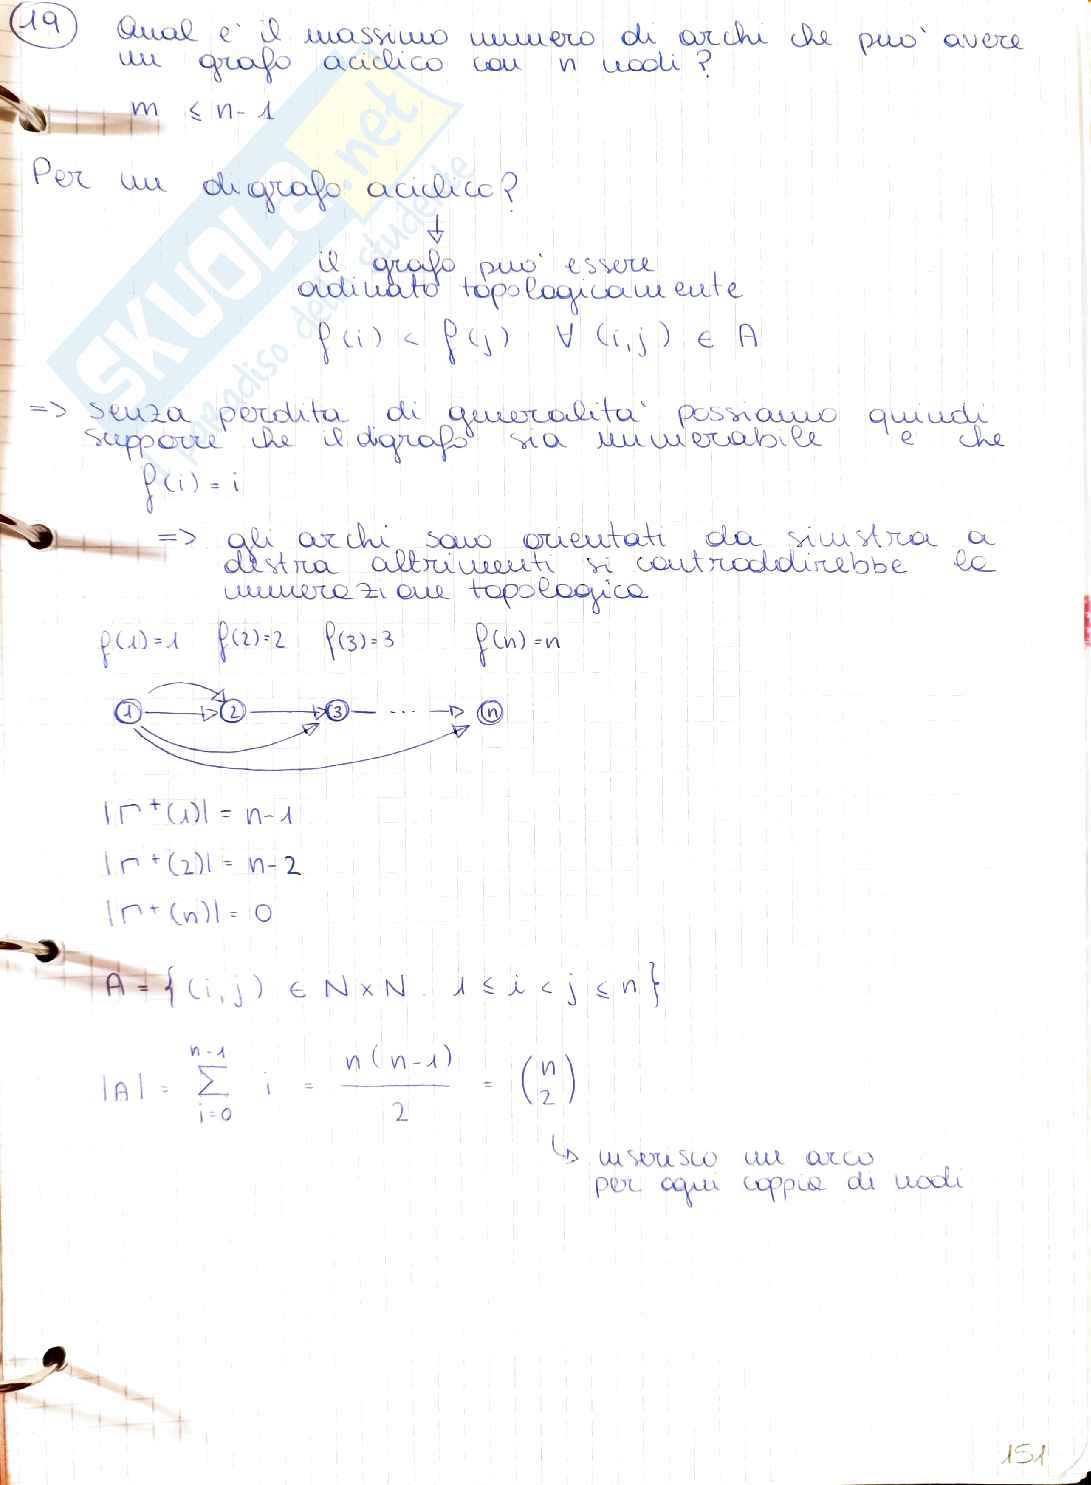 19 Qual e' il massimo numero di archi che puo' avere
un grafo aciclico con n nodi?
m ≤ n-1
Per un digrafo aciclico?
↓
il grafo puo' essere
ordinato topologicamente
f(i) < f(j) ∀ (i,j) ∈ A
=> senza perdita di generalita' possiamo quindi
supporre che il digrafo sia numerabile e che
f(i) = i
=> gli archi sono orientati da sinistra a
destra altrimenti si contraddirebbe la
numerazione topologica
f(1)=1 f(2)=2 f(3)=3 f(n)=n
1 2 3 ... n
|Γ+(1)| = n-1
|Γ+(2)| = n-2
|Γ+(n)| = 0
A = {(i,j) ∈ N×N. 1 ≤ i < j ≤ n}
|A| = ∑_{i=0}^{n-1} i = n(n-1)/2 = (n 2)
↳ inserisco un arco
per ogni coppia di nodi
151
SKUOLA.net
il paradiso dello studente